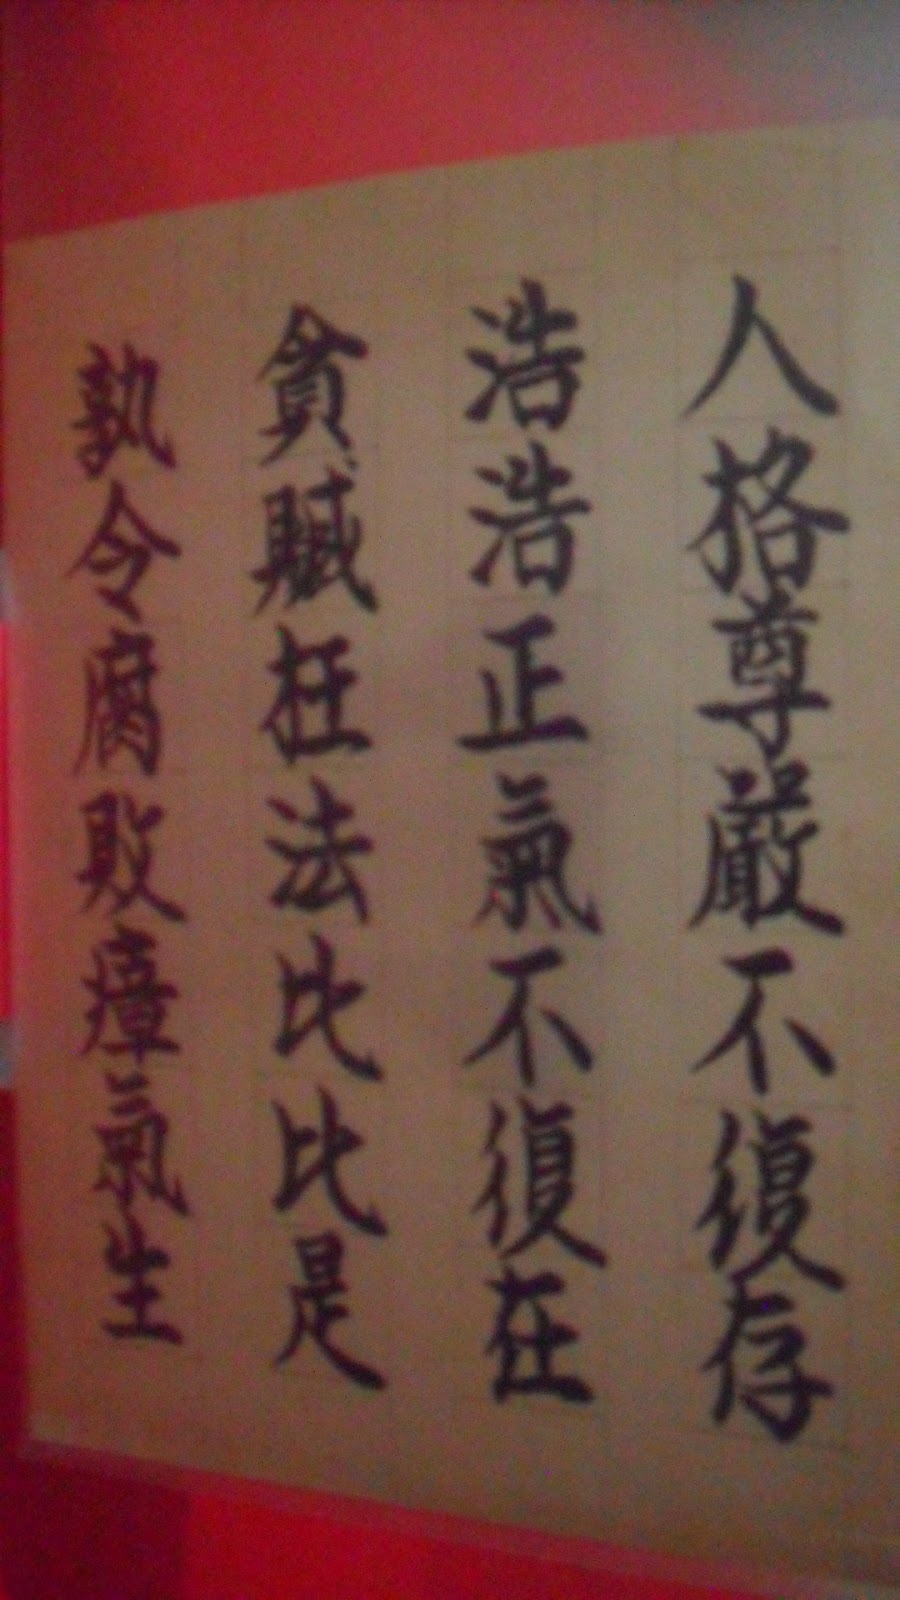 人格尊嚴不復存
浩浩正氣不復在
貪賦枉法比比是
孰令腐敗瘴氣生